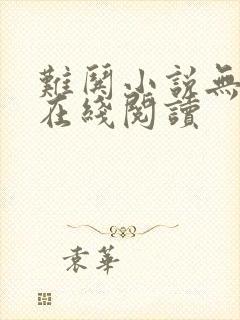 難関小説無
在綫閱讀
袁華